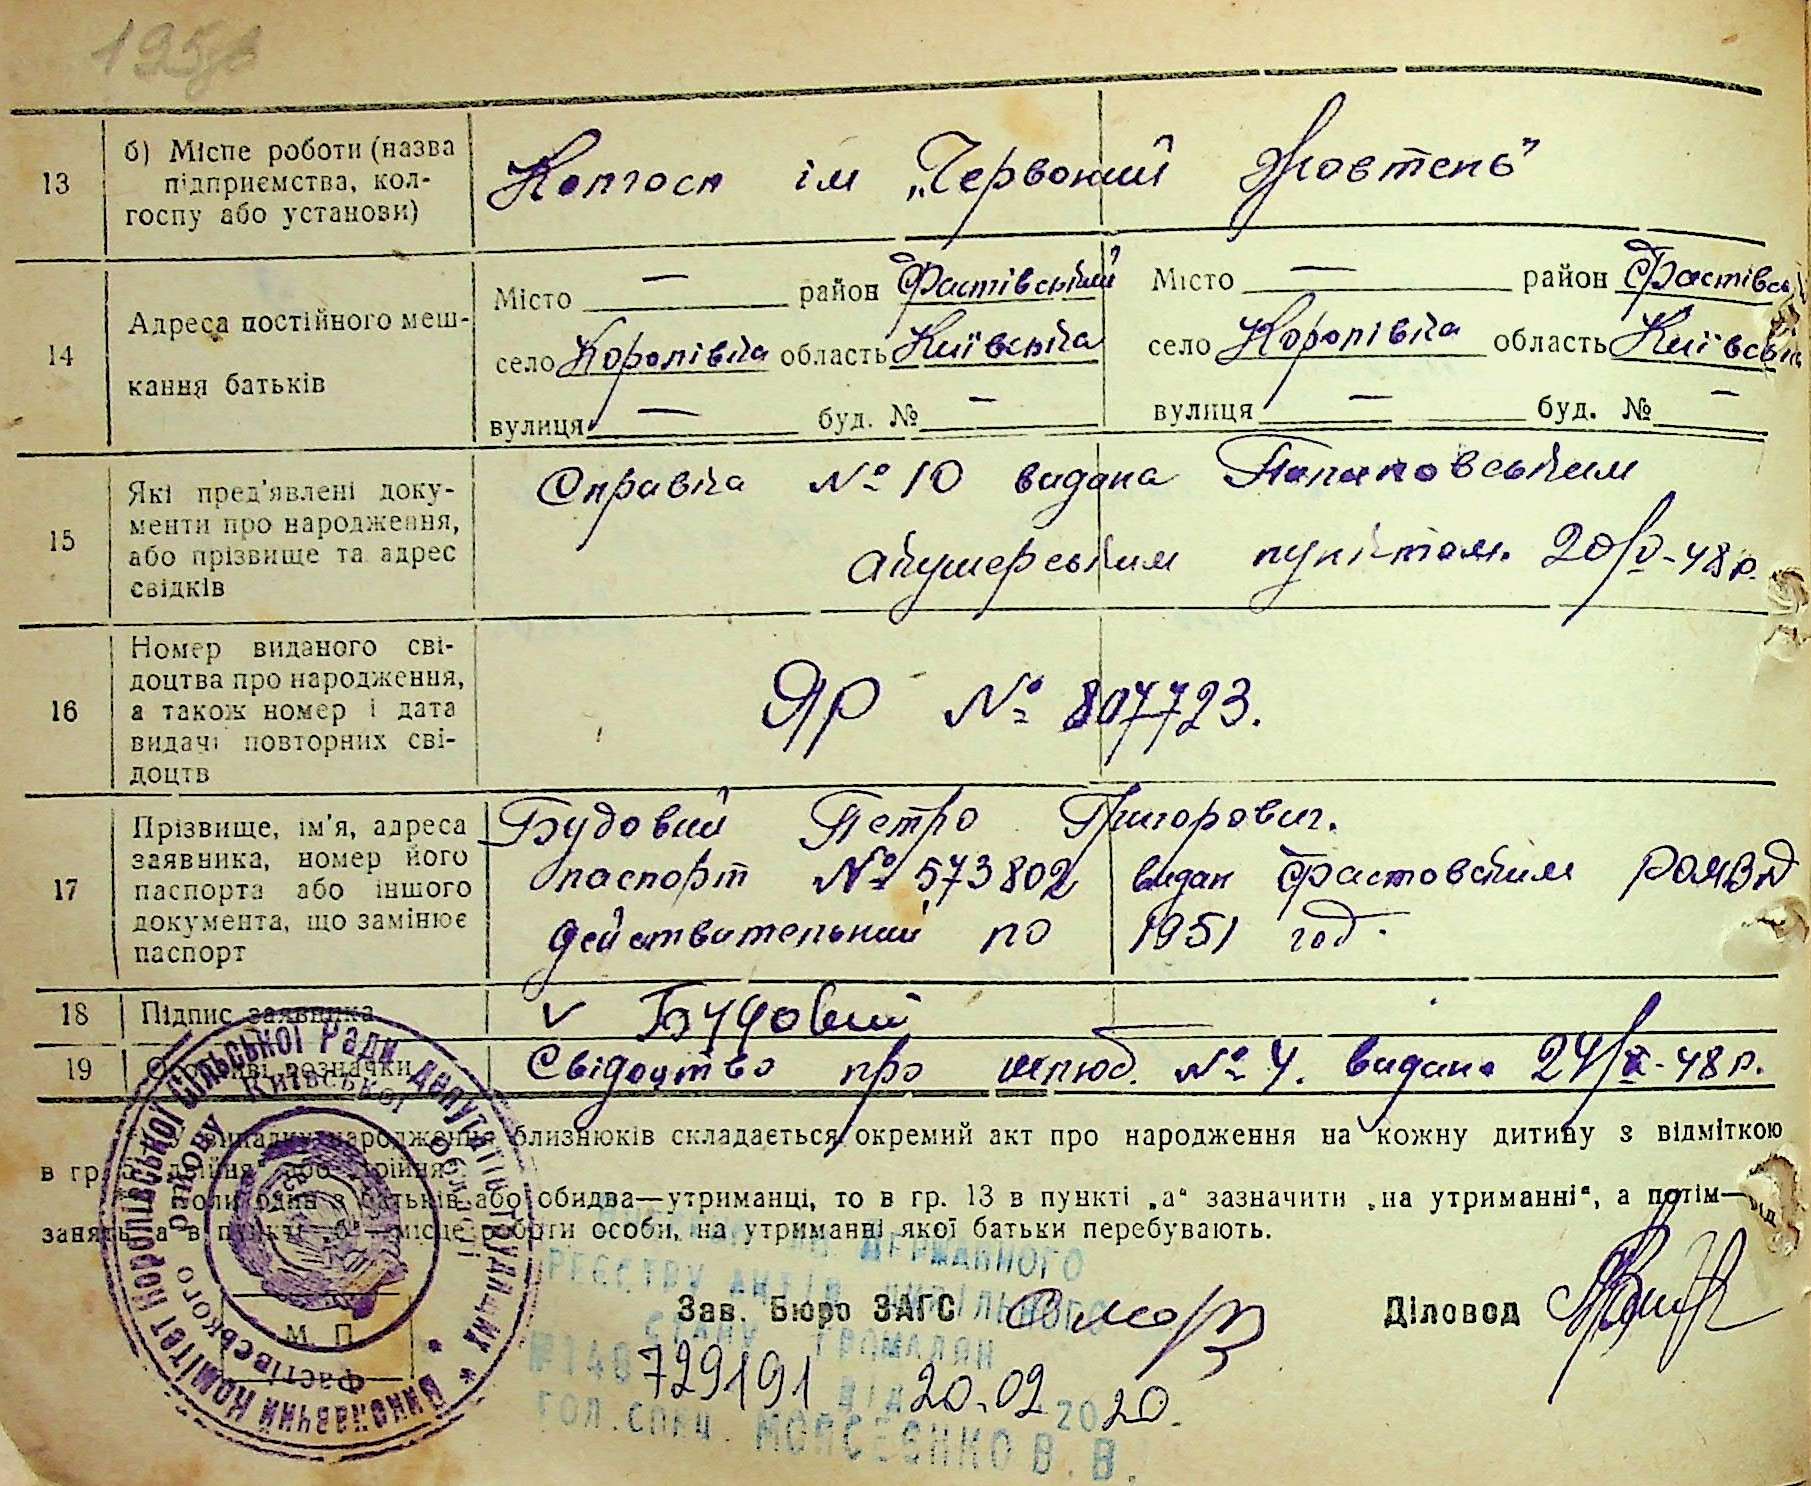 13
б) Місце роботи (назва
підприємства, кол-
госпу або установи)
Колгосп ім „Червоний Жовтень"
14
Адреса постійного меш-
кання батьків
Місто — район Фастівський
село Королівка область Київська
вулиця — буд. № —
Місто — район Фастівськ
село Королівка область Київськ
вулиця — буд. № —
15
Які пред'явлені доку-
менти про народження,
або прізвище та адрес
свідків
Справка № 10 видана
акушерським пунктом. 20/V-48 р.
16
Номер виданого сві-
доцтва про народження,
а також номер і дата
видачі повторних сві-
доцтв
ЯР № 807723.
17
Прізвище, ім'я, адреса
заявника, номер його
паспорта або іншого
документа, що замінює
паспорт
Будовий Петро Григорович.
паспорт № 573802 видан Фастовским
действительний по 1951 год.
18
Підпис заявника
Будовий
19
Особливі позначки
Свідоцтво про шлюб. № 4. видано 24/ -48 р.
У випадку народження близнюків складається окремий акт про народження на кожну дитину з відміткою
в гр. двійня або трійня
Коли один з батьків або обидва—утриманці, то в гр. 13 в пункті „а" зазначити „на утриманні", а потім—
занять, а в пункті „б"—місце роботи особи, на утриманні якої батьки перебувають.
Виконавчий Комітет Королівської сільської Ради депутатів трудящих
Фастівського району Київської області
М. П.
Зав. Бюро ЗАГС
Діловод
ДЕРЖАВНОГО
РЕЄСТРУ АКТІВ ЦИВІЛЬНОГО
СТАНУ ГРОМАДЯН
№ 140 729191 від 20.02 2020.
ГОЛ. СПЕЦ. МОЙСЕЄНКО В. В.